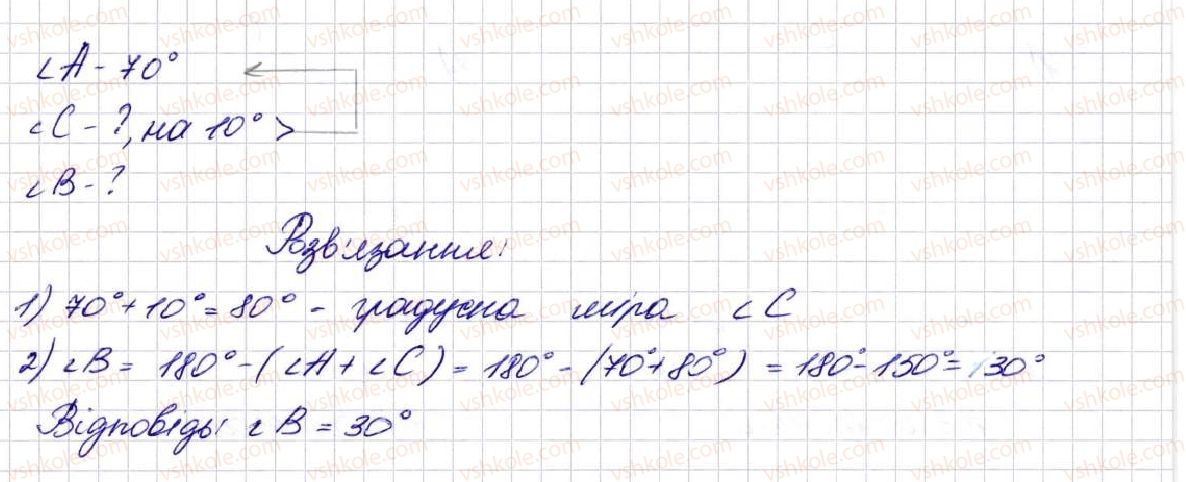 ∠A - 70°
∠C - ?, на 10° >
∠B - ?
Розв'язання:
1) 70° + 10° = 80° - градусна міра ∠C
2) ∠B = 180° - (∠A + ∠C) = 180° - (70° + 80°) = 180° - 150° = 30°
Відповідь: ∠B = 30°
vshkole.com